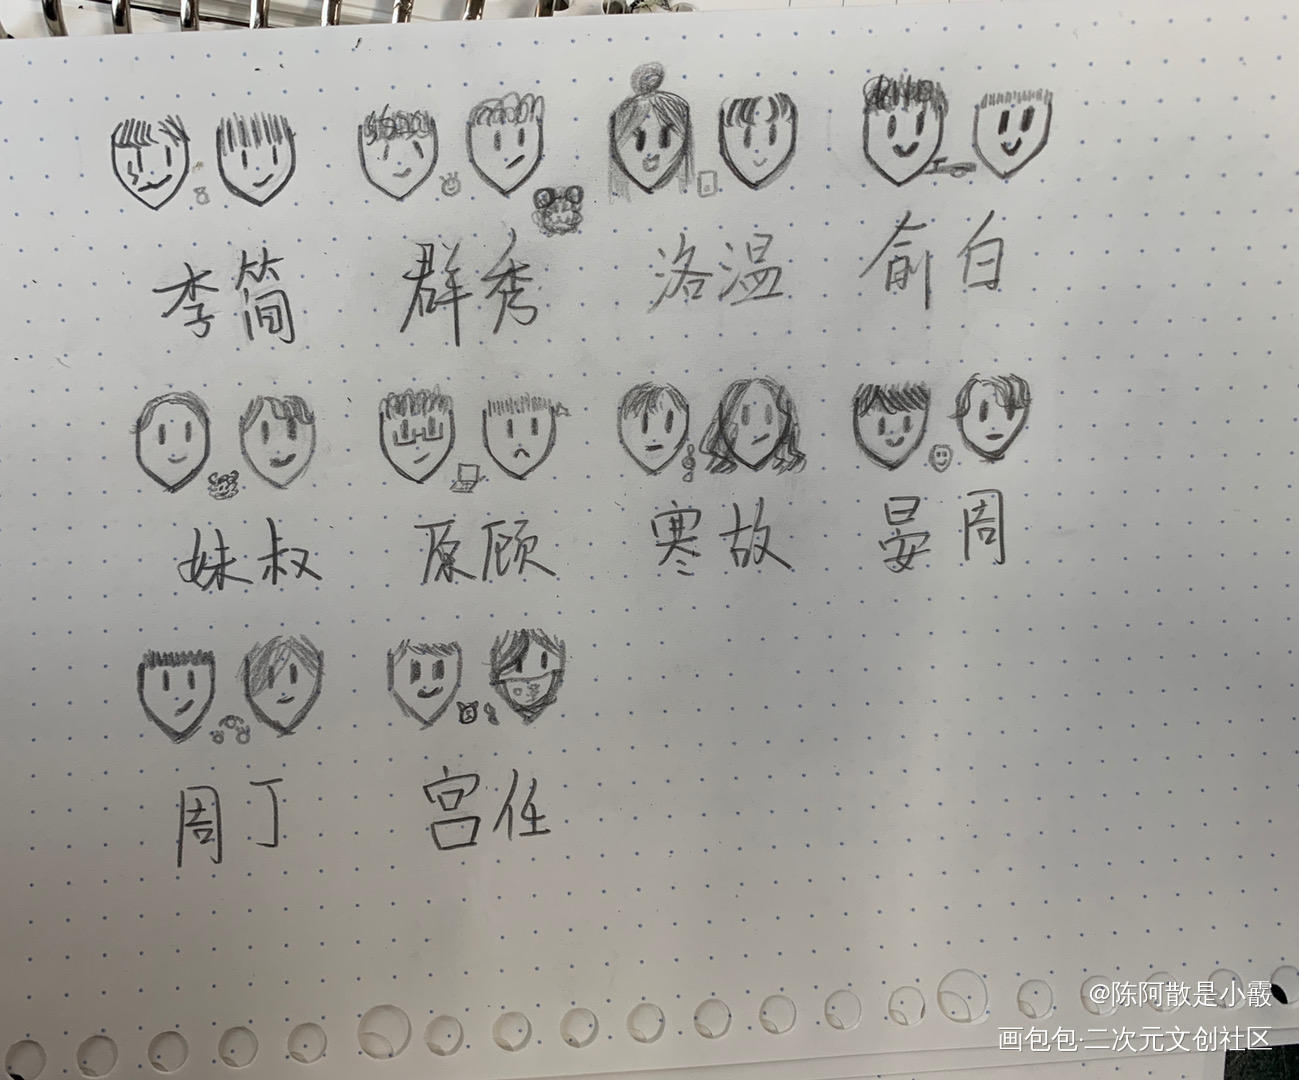 李简 群秀 洛温 俞白
妹叔 原顾 寒故 晏周
周丁 宫任
@陈阿散是小霰
画包包·二次元文创社区